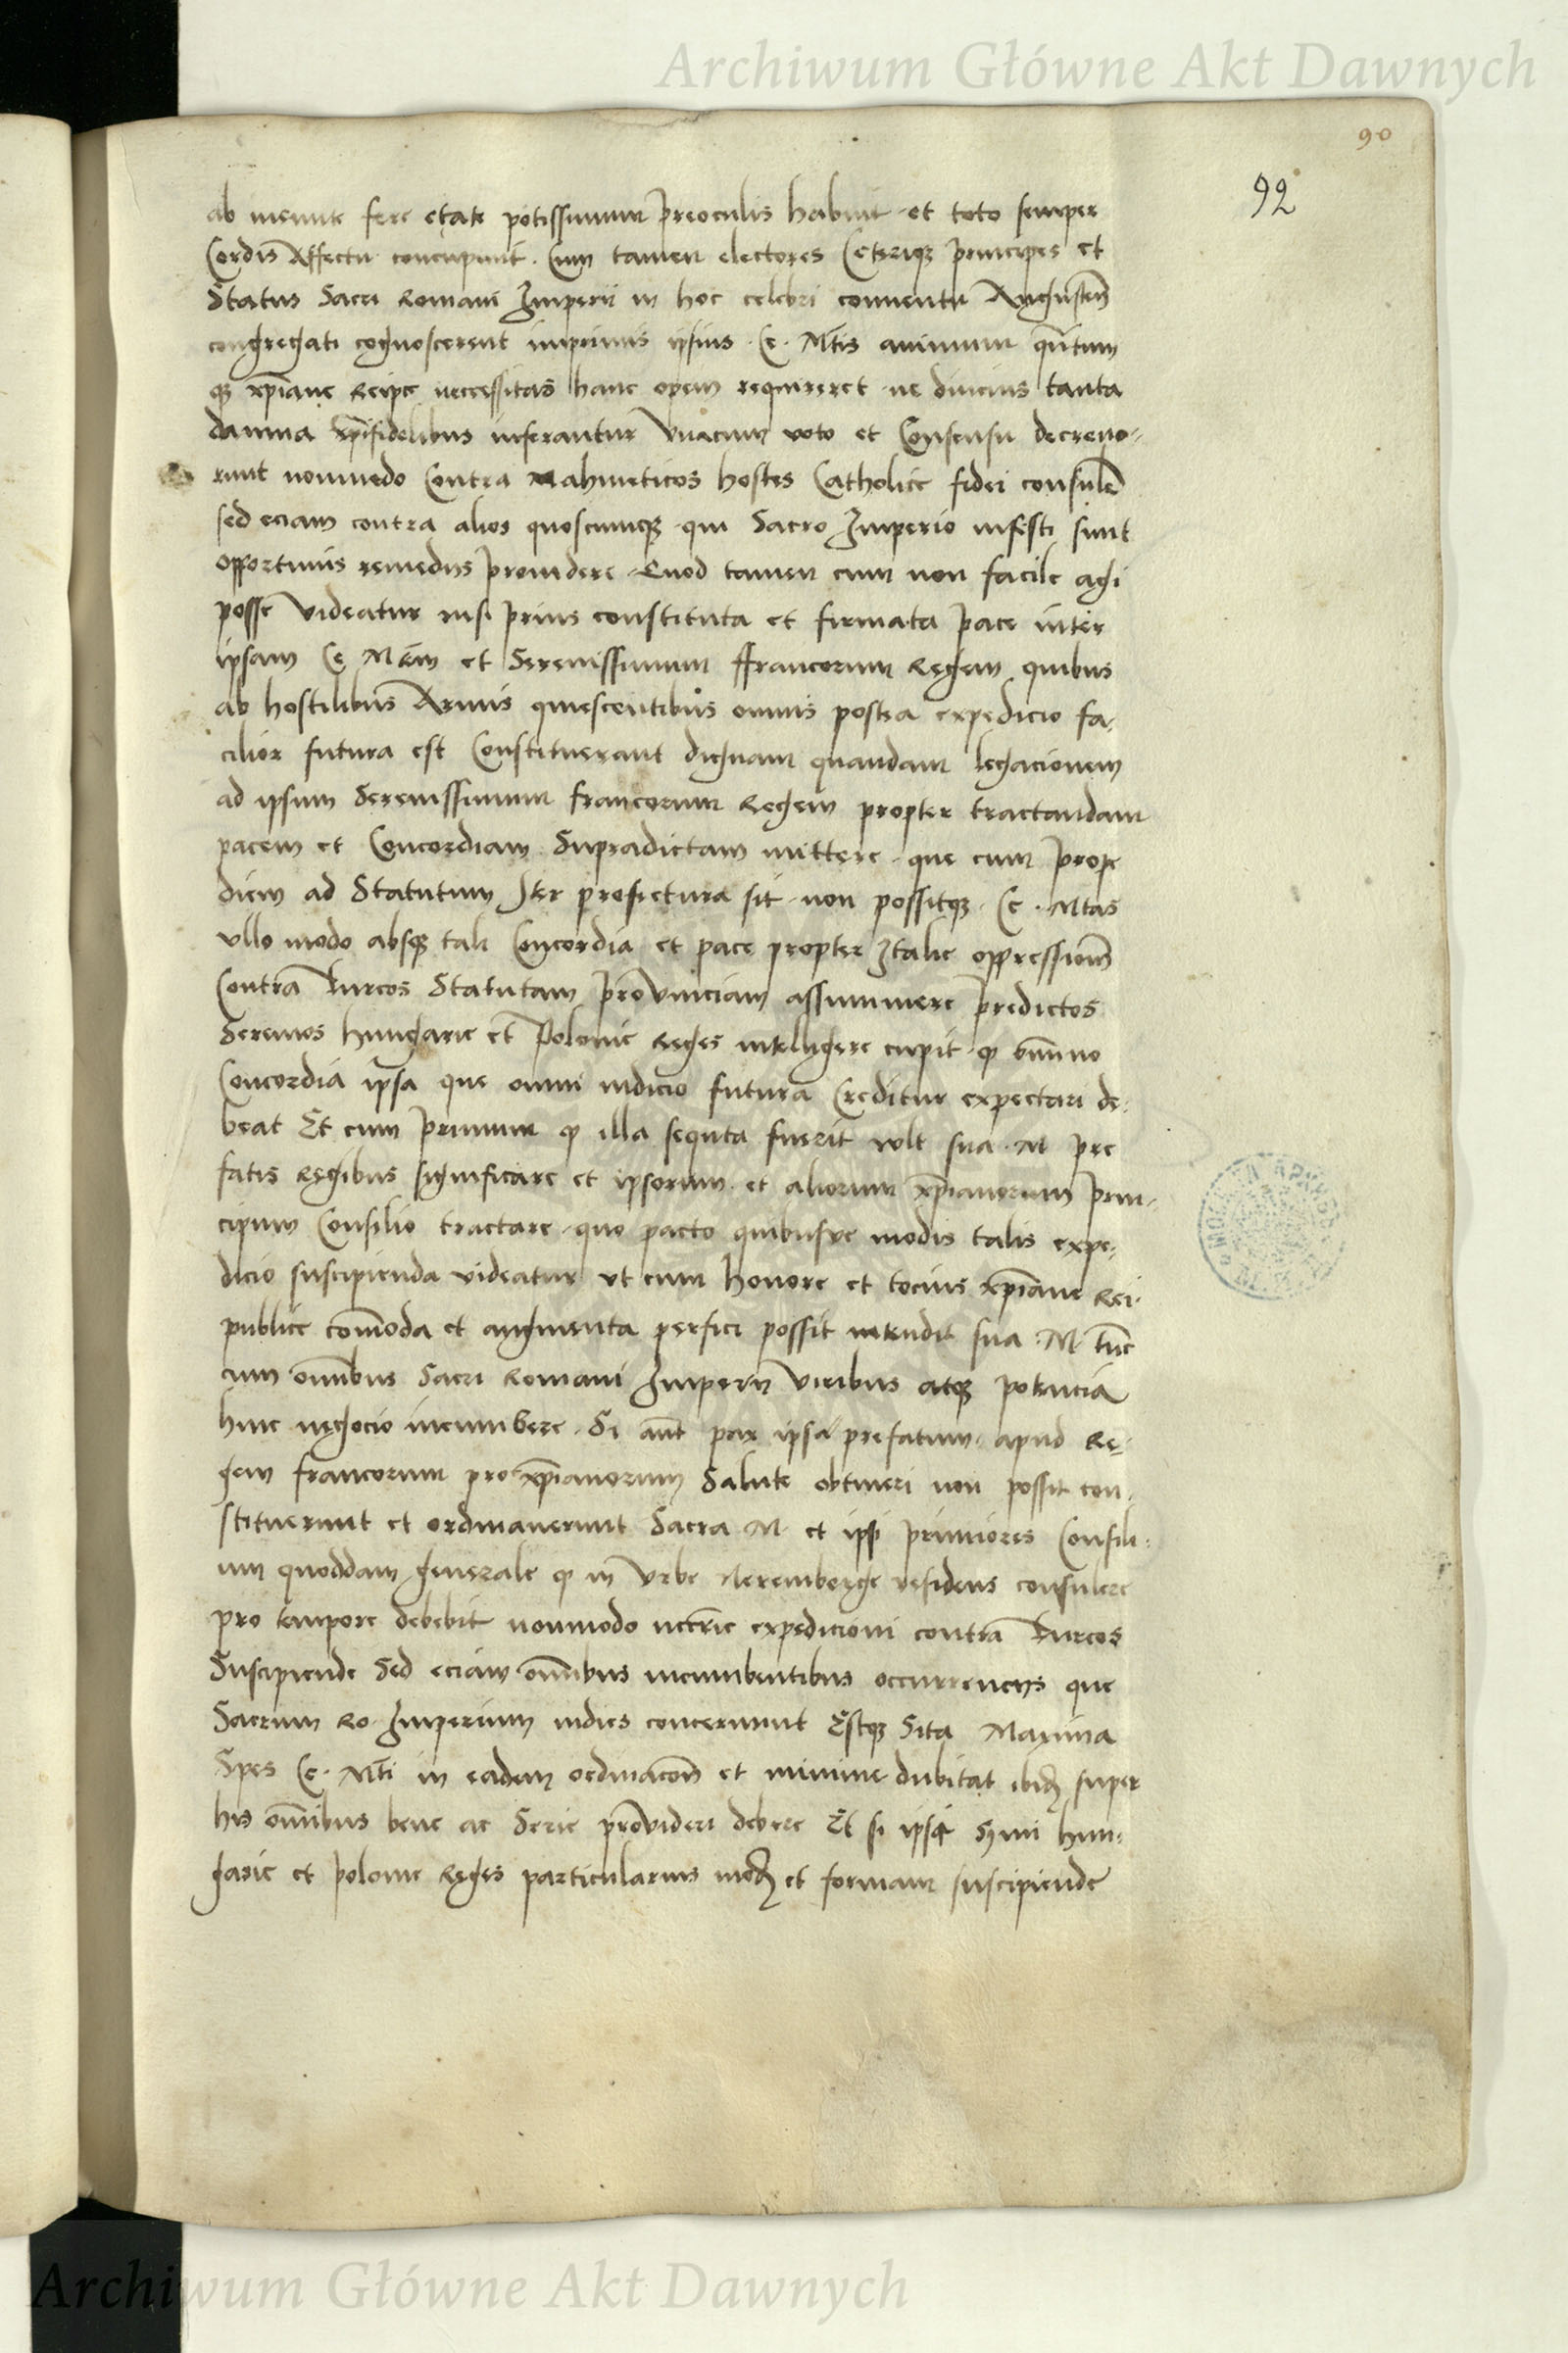 Archiwum Główne Akt Dawnych
90
92
ab ineunte fere etate potissimum preoculis habuit et toto semper
Cordis Affectu concupiuit. Cum tamen electores Ceteriqȝ principes et
Status Sacri Romani Imperii in hoc celebri conuentu Augusteñ
congregati cognoscerent inprimis ipsius Ce. Mtis animum qñtum
qȝ xp̄iane Reipce necessitas hanc opem requireret ne diucius tanta
damna xp̄ifidelibus inferantur Vnacum voto et Consensu decreue-
runt nonmodo Contra Mahmeticos hostes Catholice fidei consulē
sed eciam contra alios quoscumqȝ qui Sacro Imperio infesti sunt
opportunis remediis prouidere. Quod tamen cum non facile agi
posse Videatur nisi prius constituta et firmata pace inter
ipsam Ce Mtem et Serenissimum ffrancorum Regem quibus
ab hostilibus Armis quiescentibus omnis postea expedicio fa-
cilior futura est Constituerant dignam quandam legacionem
ad ipsum Serenissimum francorum Regem propter tractandam
pacem et Concordiam Supradictam mittere que cum prope
diem ad Statutum Iter profectura sit non possitqȝ Ce. Mtas
vllo modo absqȝ tali Concordia et pace propter Italie oppressionē
Contra Turcos Statutam prouinciam assummere predictos
Seremos hungarie et Polonie Reges intelligere cupit qȝ omīno
Concordia ipsa que omni indicio futura Creditur expectari de-
beat Et cum primum qȝ illa sequta fuerit vult sua. M pre
fatis Regibus significare et ipsorum et aliorum xp̄ianorum prin-
cipum Consilio tractare quo pacto quibusve modis talis expe-
dicio suscipienda videatur vt cum honore et tocius xp̄iane Rei-
publice com̄oda et augmenta perfici possit intendit sua M. tūc
cum om̄ibus Sacri Romani Imperii Viribus atqȝ potencia
huic negocio incumbere. Si aūt pax ipsa prefatum apud Re-
gem francorum pro xp̄ianorum Salute obtineri non possit con-
stituerunt et ordinauerunt Sacra M et ipsi primiores Consili-
um quoddam generale qȝ in Vrbe Neremberge residens consulere
pro tempore debebit nonmodo nccrie expedicioni contra Turcos
Suscipiende Sed eciam om̄ibus incumbentibus occurrenciis que
Sacrum Ro. Imperium indies concernunt Estqȝ Sita Maxima
Spes Ce. Mti in eadem ordinacōn et minime dubitat ibid super
his om̄ibus bene ac Serie prouideri debere Et si ipsi Symi hun-
garie et polonie Reges particularius mod et formam suscipiende
Archiwum Główne Akt Dawnych